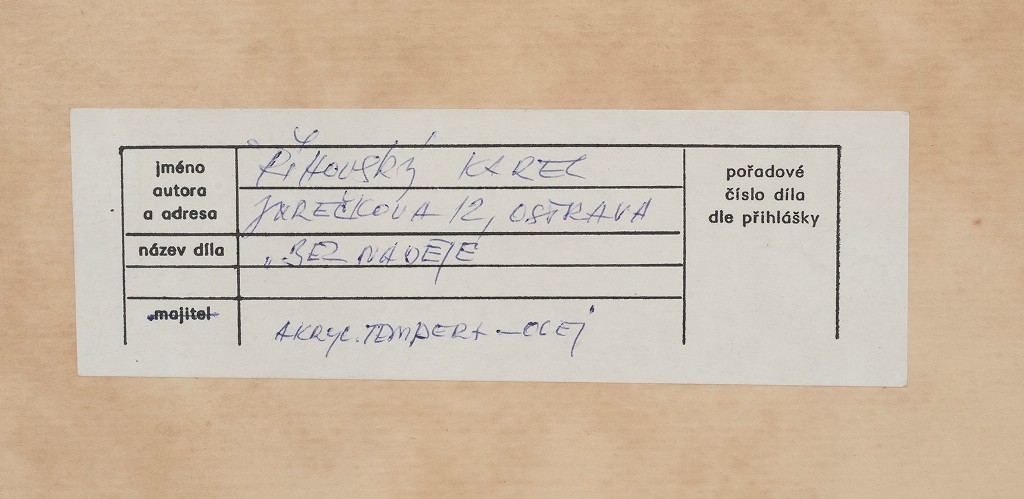 jméno
autora
a adresa
Říhovský KAREL
JUREČKOVA 12, OSTRAVA
název díla
„BEZ NADĚJE
majitel
AKRYL. TEMPERA – OLEJ
pořadové
číslo díla
dle přihlášky